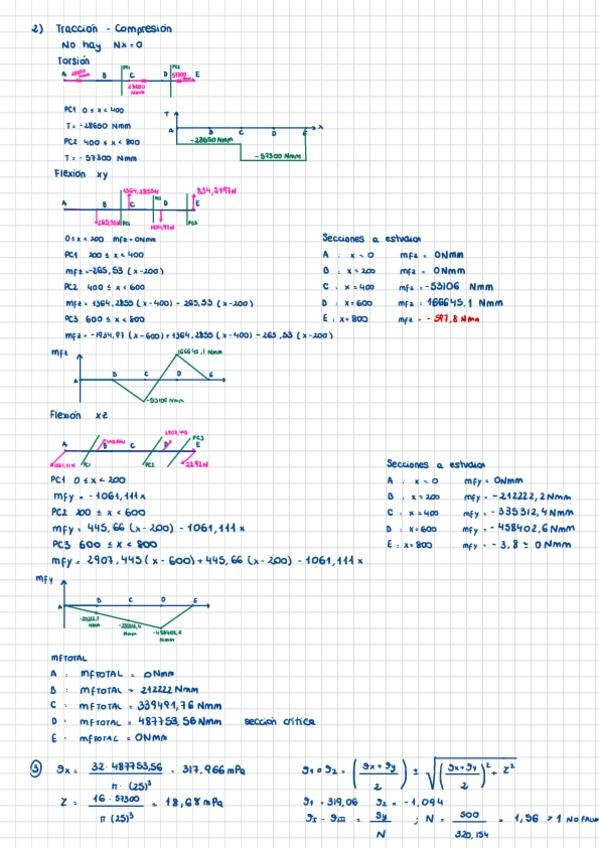 2) Tracción - Compresión
No hay Nx = 0
Torsión
A B C D E
PC1 PC2
28650 Nmm 57300 Nmm
PC1 0 ≤ x < 400
T = -28650 Nmm
PC2 400 ≤ x < 800
T = -57300 Nmm
T
A B C D E x
-28650 Nmm
-57300 Nmm
Flexión xy
1364,2855N 834,2197N
A B C D E
265,53N PC1 PC2 1934,97N PC3
0 ≤ x < 200 mfz = 0Nmm
PC1 200 ≤ x < 400
mfz = -265,53 (x-200)
PC2 400 ≤ x < 600
mfz = 1364,2855 (x-400) - 265,53 (x-200)
PC3 600 ≤ x < 800
mfz = -1934,97 (x-600) + 1364,2855 (x-400) - 265,53 (x-200)
Secciones a estudiar
A : x = 0 mfz = 0Nmm
B : x = 200 mfz = 0Nmm
C : x = 400 mfz = -53106 Nmm
D : x = 600 mfz = 166645,1 Nmm
E : x = 800 mfz = -597,8 Nmm
mfz
166645,1 Nmm
A B C D E
-53106 Nmm
Flexión xz
2907,445
A B C D E
PC1 PC2 PC3
2292N
PC1 0 ≤ x < 200
mfy = -1061,111x
PC2 200 ≤ x < 600
mfy = 445,66 (x-200) - 1061,111x
PC3 600 ≤ x < 800
mfy = 2907,445 (x-600) + 445,66 (x-200) - 1061,111x
Secciones a estudiar
A : x = 0 mfy = 0Nmm
B : x = 200 mfy = -212222,2Nmm
C : x = 400 mfy = -335312,4Nmm
D : x = 600 mfy = -458402,6Nmm
E : x = 800 mfy = -3,8 ≈ 0Nmm
mfy
A B C D E
-458402,6 Nmm
MFTOTAL
A : MFTOTAL = 0Nmm
B : MFTOTAL = 212222Nmm
C : MFTOTAL = 339491,76 Nmm
D : MFTOTAL = 487753,56Nmm sección crítica
E : MFTOTAL = 0Nmm
③ σx = 32 · 487753,56 / π · (25)³ = 317,966 mPa
τ = 16 · 57300 / π (25)³ = 18,68 mPa
σ1 o σ2 = (σx + σy / 2) ± √((σx + σy / 2)² + τ²)
σ1 = 319,06 σ2 = -1,094
σI - σIII = σy / N ; N = 500 / 320,154 = 1,56 > 1 NO FALLA